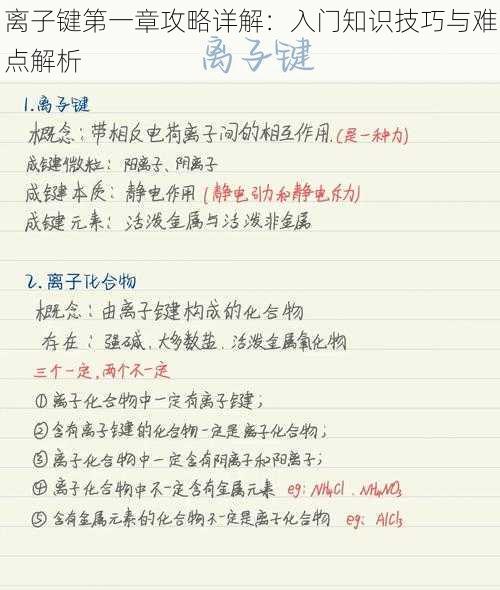 离子键第一章攻略详解：入门知识技巧与难
点解析
离子键
1.离子键
概念：带相反电荷离子间的相互作用.(是一种力)
成键微粒：阳离子、阴离子
成键本质：静电作用(静电引力和静电斥力)
成键元素：活泼金属与活泼非金属
2.离子化合物
概念：由离子键构成的化合物
存在：强碱、大多数盐、活泼金属氧化物
三个一定,两个不一定
①离子化合物中一定有离子键；
②含有离子键的化合物一定是离子化合物；
③离子化合物中一定含有阴离子和阳离子；
④离子化合物中不一定含有金属元素 eg:NH₄Cl、NH₄NO₃
⑤含有金属元素的化合物不一定是离子化合物 eg:AlCl₃